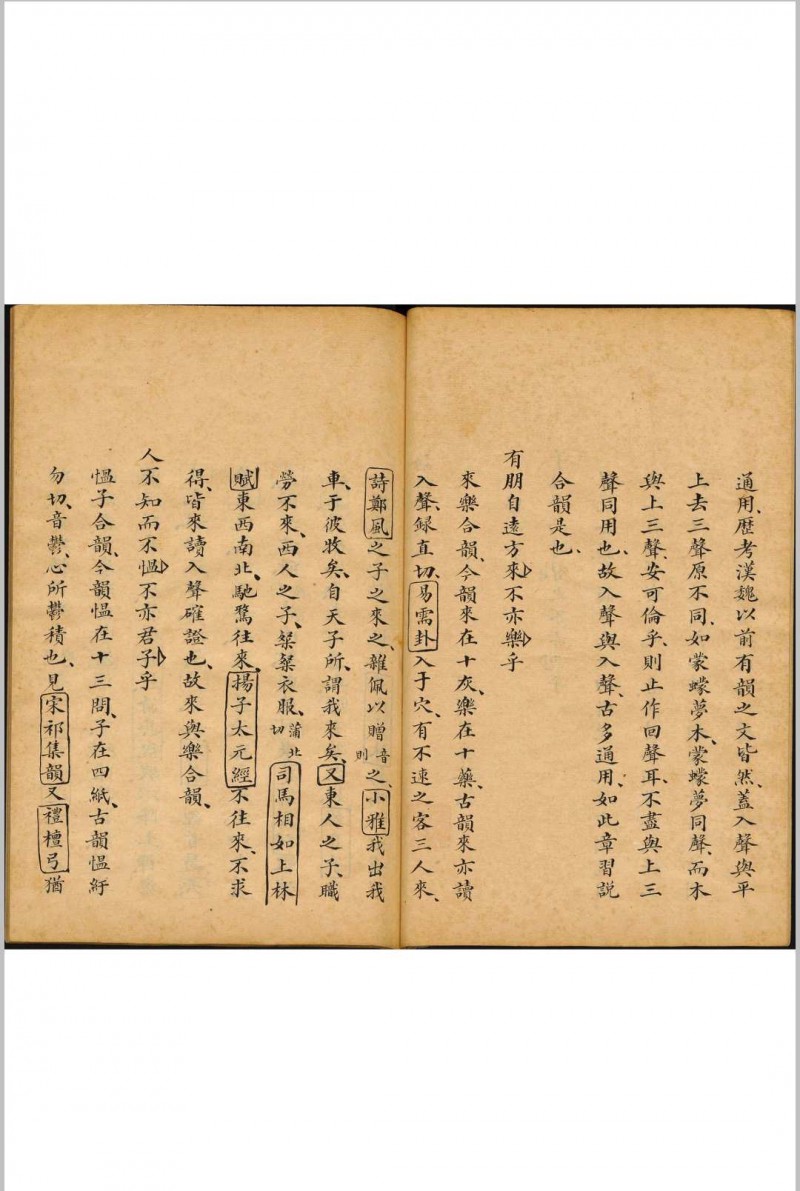 通用、歷考漢魏以前有韻之文皆然、蓋入聲與平
上去三聲原不同、如蒙蠓夢木、蒙蠓夢同聲、而木
與上三聲、安可倫乎、則止作回聲耳、不盡與上三
聲同用也、故入聲與入聲、古多通用、如此章習說
合韻是也、
有朋自遠方來不亦樂乎
來樂合韻、今韻來在十灰、樂在十藥、古韻來亦讀
入聲、錄直切、易需卦入于穴、有不速之客三人來、
詩鄭風之子之來之、雜佩以贈音則之、小雅我出我
車、于彼牧矣、自天子所、謂我來矣、又東人之子、職
勞不來、西人之子、粲粲衣服、蒲北切司馬相如上林
賦東西南北、馳騖往來、揚子太元經不往來、不求
得、皆來讀入聲確證也、故來與樂合韻、
人不知而不慍不亦君子乎
慍子合韻、今韻慍在十三問、子在四紙、古韻慍紆
勿切、音鬱、心所鬱積也、見宋祁集韻又禮檀弓猶